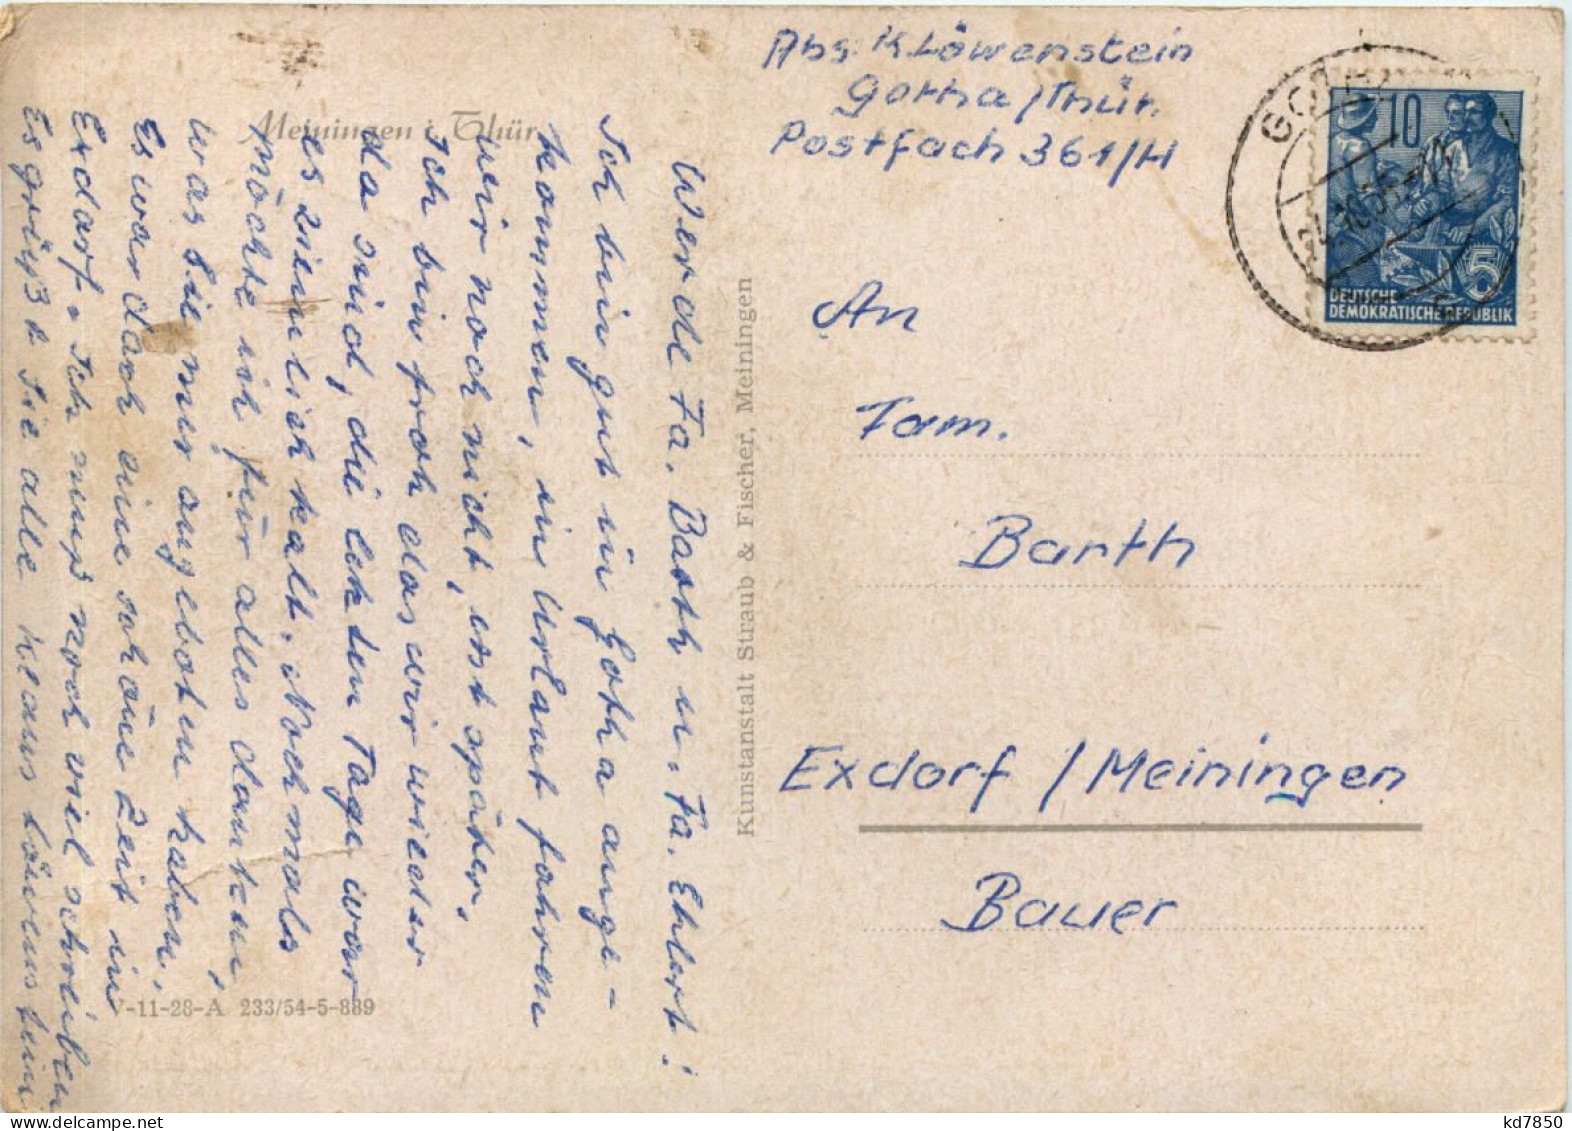 Meiningen i. Thür.
Werde Fa. Barth u. Fa. Ehlert!
Ich bin gut in Gotha ange-
kommen, in Urlaut fahren
wir noch nicht, erst später.
Ich bin froh das wir wieder
da sind, die letzten Tage war
es ziemlich kalt. Nochmals
möchte ich für alles danken,
was Sie mir angeboten haben,
Es war doch eine schöne Zeit in
Exdorf. Ich muß noch viel schreiben
Es grüßt Sie alle Klaus Löwenstein
V-11-28-A 233/54-5-889
Kunstanstalt Straub & Fischer, Meiningen
Abs: K. Löwenstein
Gotha/Thür.
Postfach 361/H
An
Fam.
Barth
Exdorf / Meiningen
Bauer
10
5
DEUTSCHE
DEMOKRATISCHE REPUBLIK
kd7850